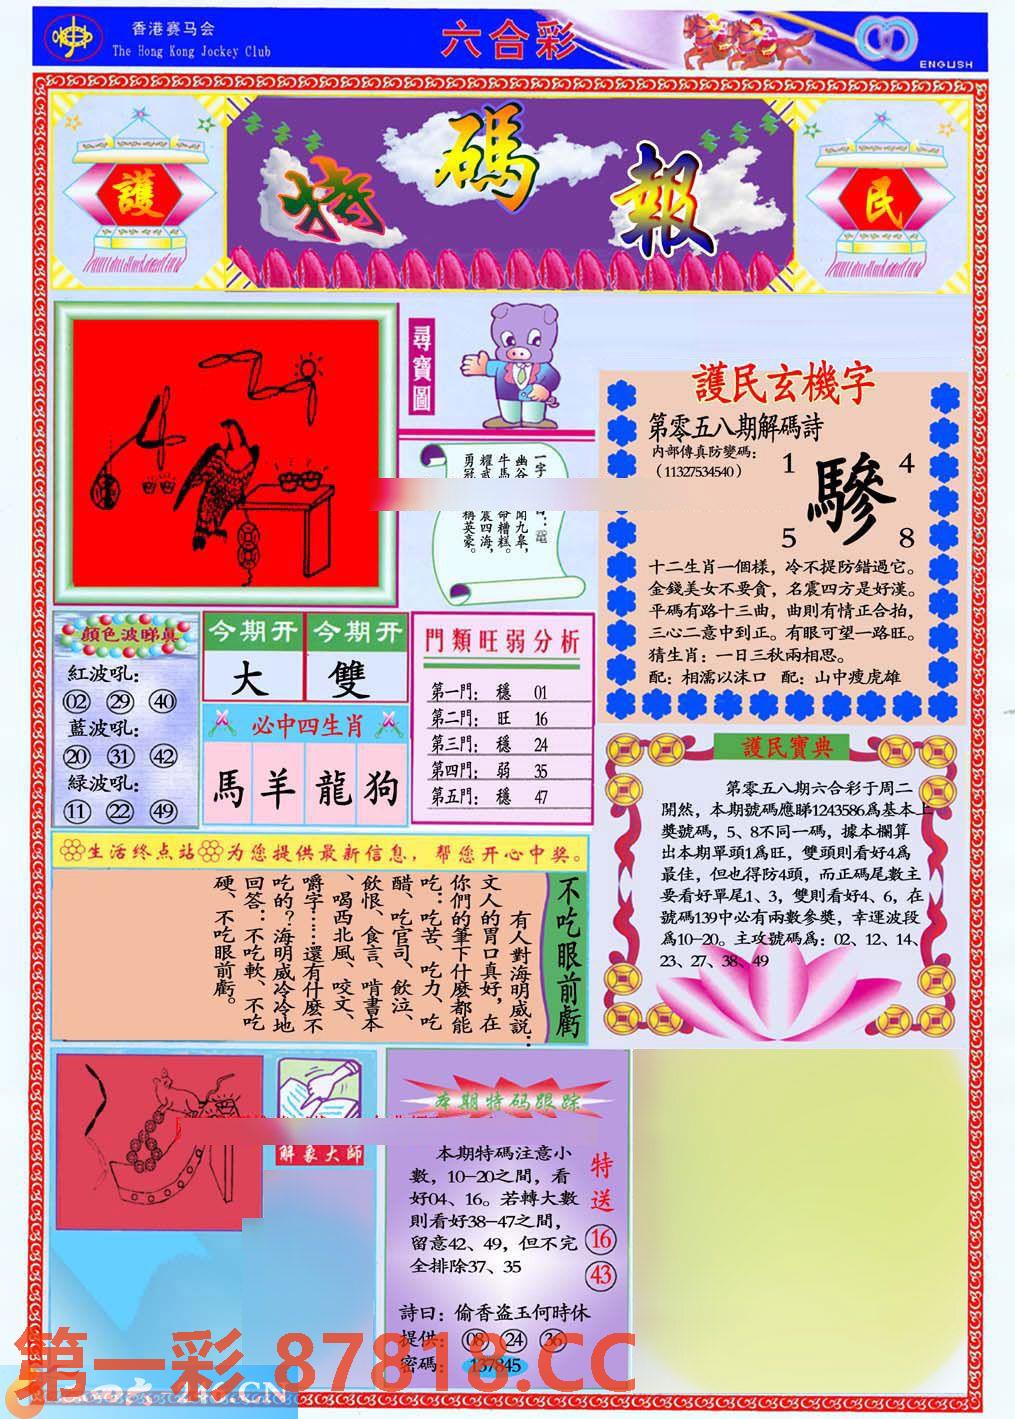 香港赛马会
The Hong Kong Jockey Club
六合彩
ENGLISH
護
特碼報
民
尋寶圖
勇冠
稱英豪。
震四海,
命糟糕。
聞九皋,
護民玄機字
第零五八期解碼詩
內部傳真防變碼:
(11327534540)
1
4
驂
5
8
十二生肖一個樣，冷不提防錯過它。
金錢美女不要貪，名震四方是好漢。
平碼有路十三曲，曲則有情正合拍，
三心二意中到正。有眼可望一路旺。
猜生肖：一日三秋兩相思。
配：相濡以沫口 配：山中瘦虎雄
顏色波睇真
紅波吼:
02 29 40
藍波吼:
20 31 42
綠波吼:
11 22 49
今期开
大
今期开
雙
必中四生肖
馬 羊 龍 狗
門類旺弱分析
第一門: 穩 01
第二門: 旺 16
第三門: 穩 24
第四門: 弱 35
第五門: 穩 47
護民寶典
第零五八期六合彩于周二
開然，本期號碼應睇1243586爲基本上
獎號碼，5、8不同一碼，據本欄算
出本期單頭1爲旺，雙頭則看好4爲
最佳，但也得防4頭，而正碼尾數主
要看好單尾1、3，雙則看好4、6，在
號碼139中必有兩數參獎，幸運波段
爲10-20。主攻號碼爲：02、12、14、
23、27、38、49
生活终点站 为您提供最新信息，帮您开心中奖。
不吃眼前虧
有人對海明威説：
文人的胃口真好，在
你們的筆下什麼都能
吃：吃苦、吃力、吃
醋、吃官司、飲泣、
飲恨、食言、啃書本
、喝西北風、咬文、
嚼字……還有什麼不
吃的？海明威冷冷地
回答：不吃軟、不吃
硬、不吃眼前虧。
解象大師
本期特码跟踪
本期特碼注意小
數，10-20之間，看
好04、16。若轉大數
則看好38-47之間，
留意42、49，但不完
全排除37、35
特送
16
43
詩曰：偷香盗玉何時休
提供: 08 24 36
密碼: 137845
第一彩 87818.CC